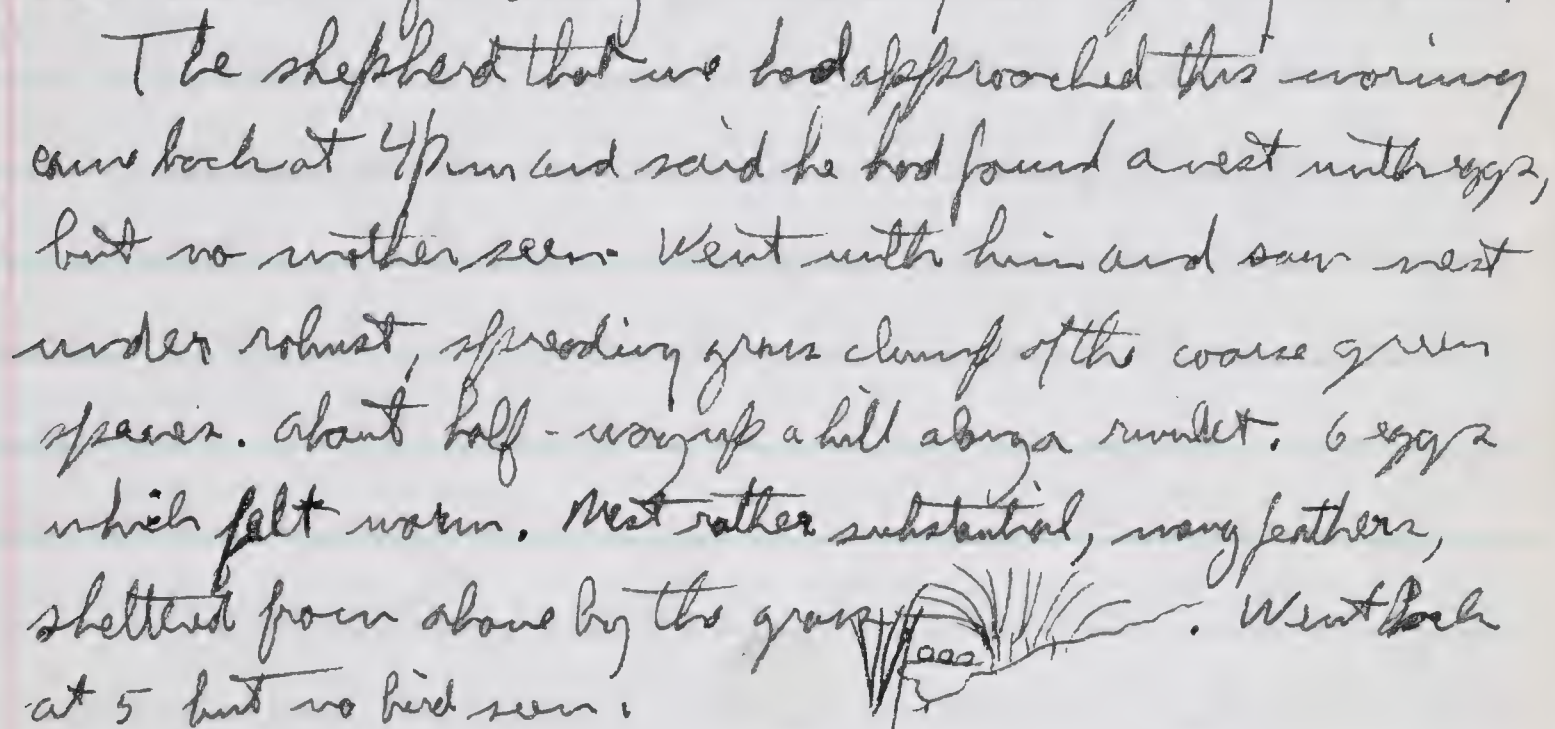 The shepherd that we had approached this morning
came back at 4pm and said he had found a nest with eggs,
but no mother seen. Went with him and saw nest
under robust, spreading grass clump of the coarse green
species. About half-way up a hill along a rivulet. 6 eggs
which felt warm. Nest rather substantial, many feathers,
sheltered from above by the grass. Went back
at 5 but no bird seen.